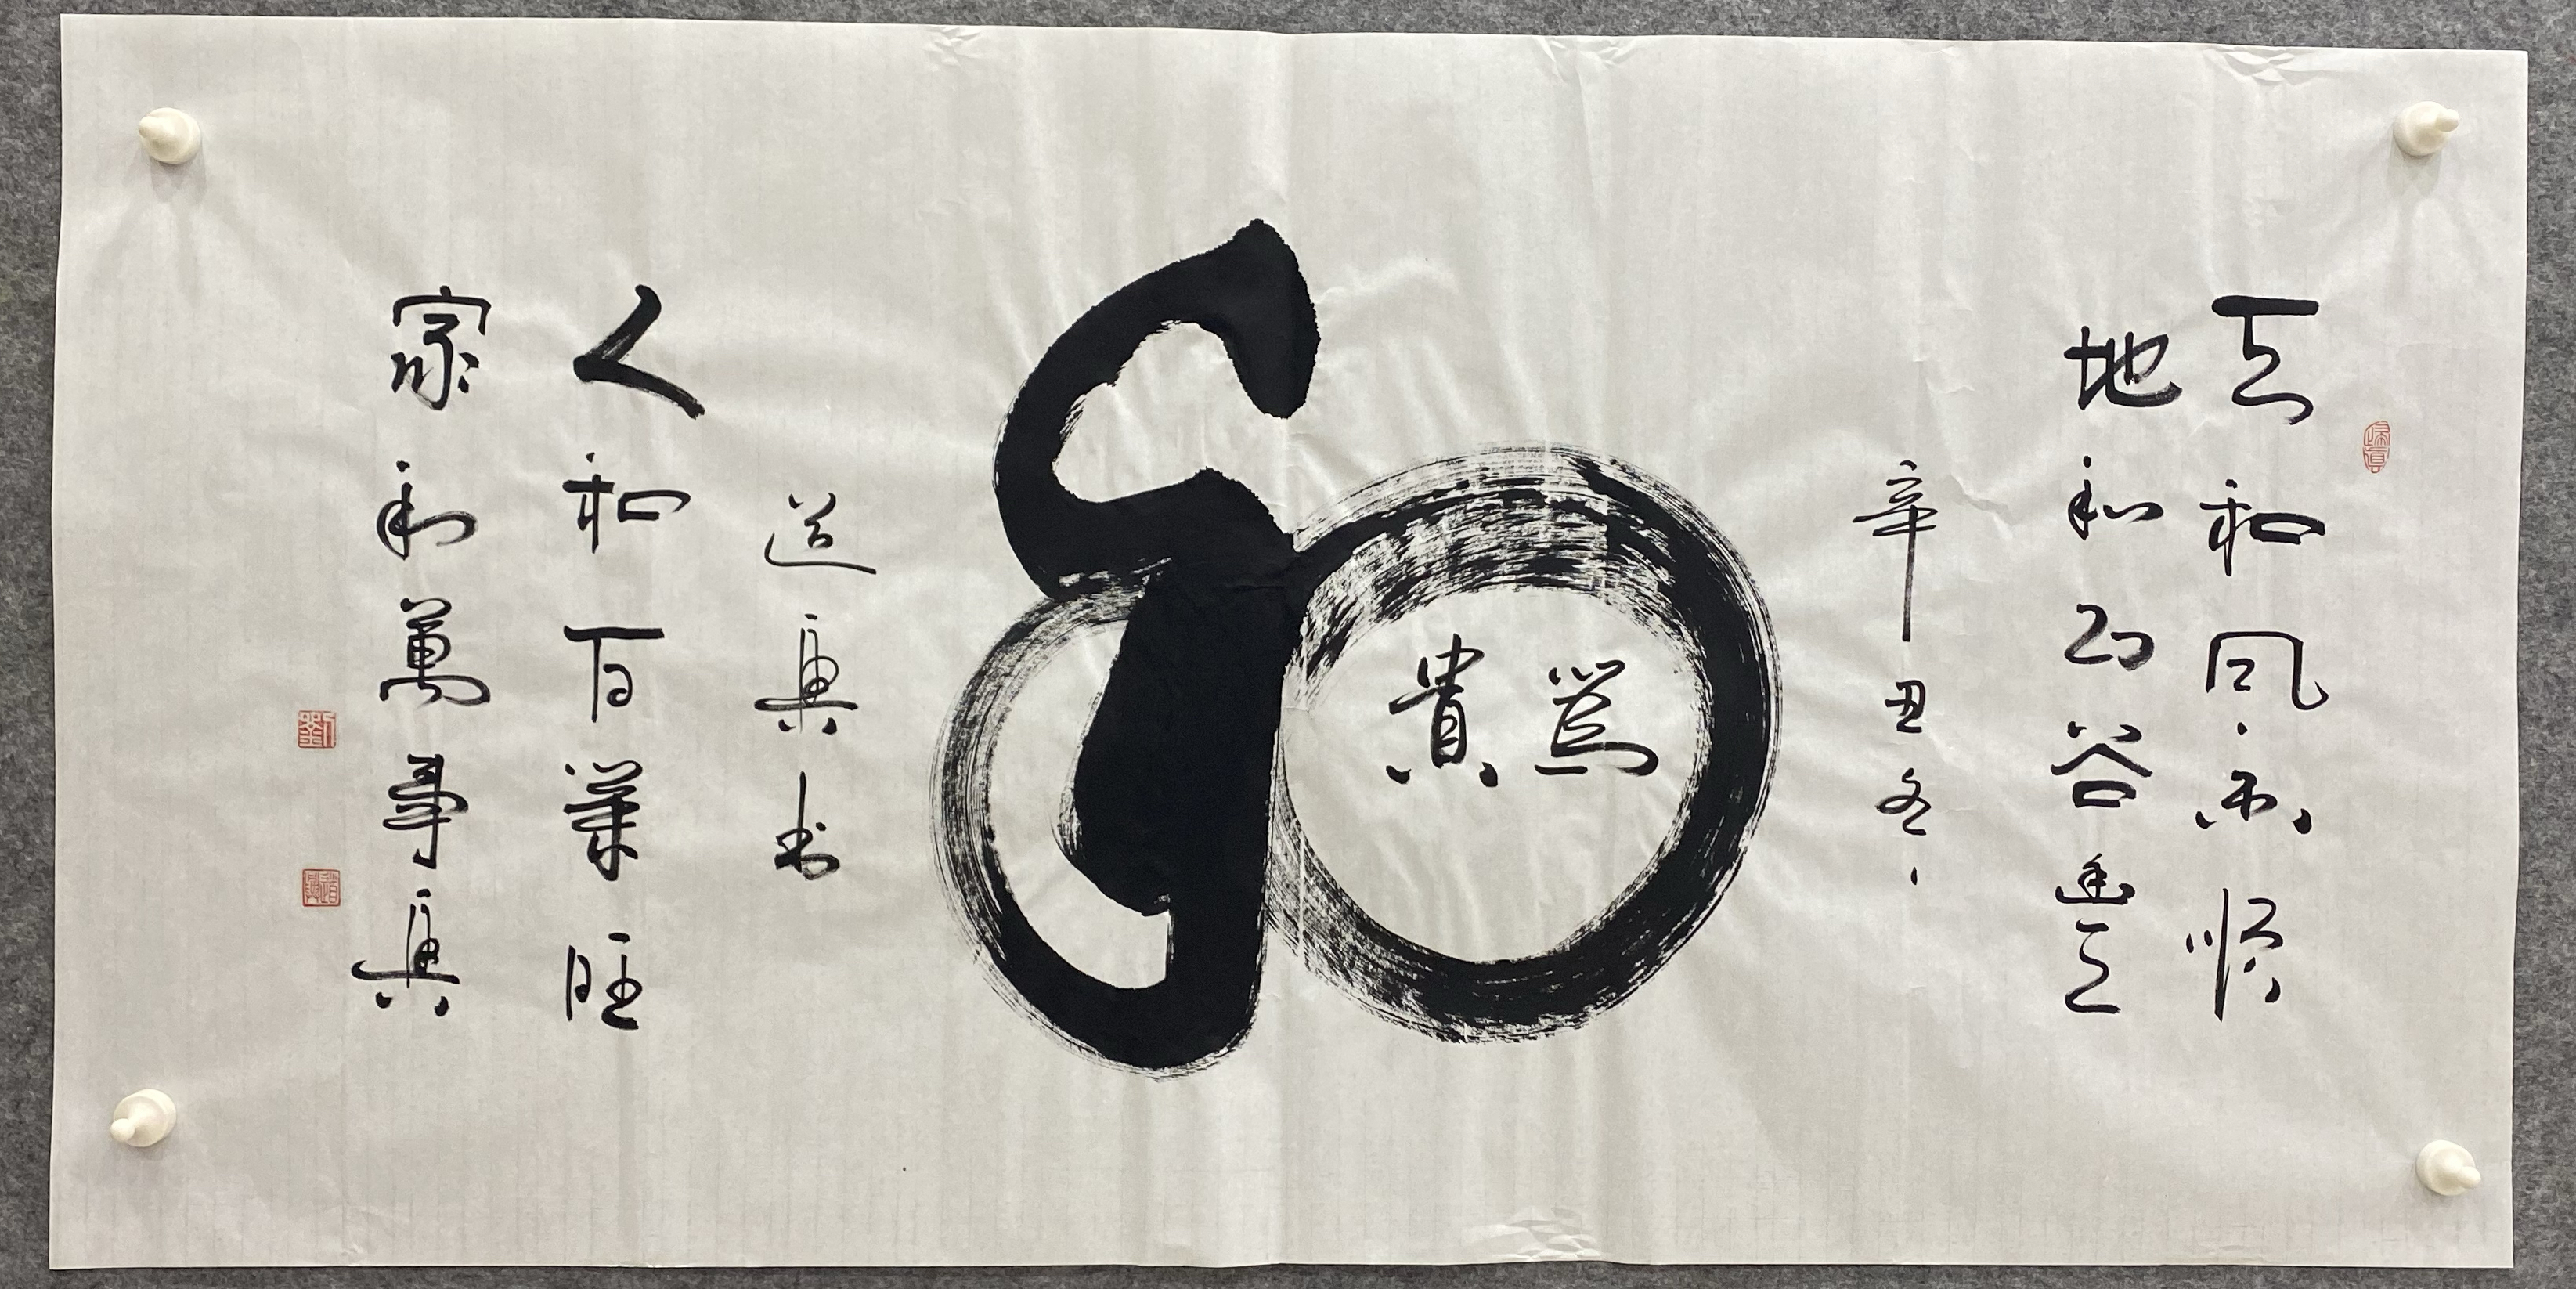 天和風雨順
地和五谷豐
辛丑冬
和
為貴
道興書
人和百業旺
家和萬事興
劉
道興